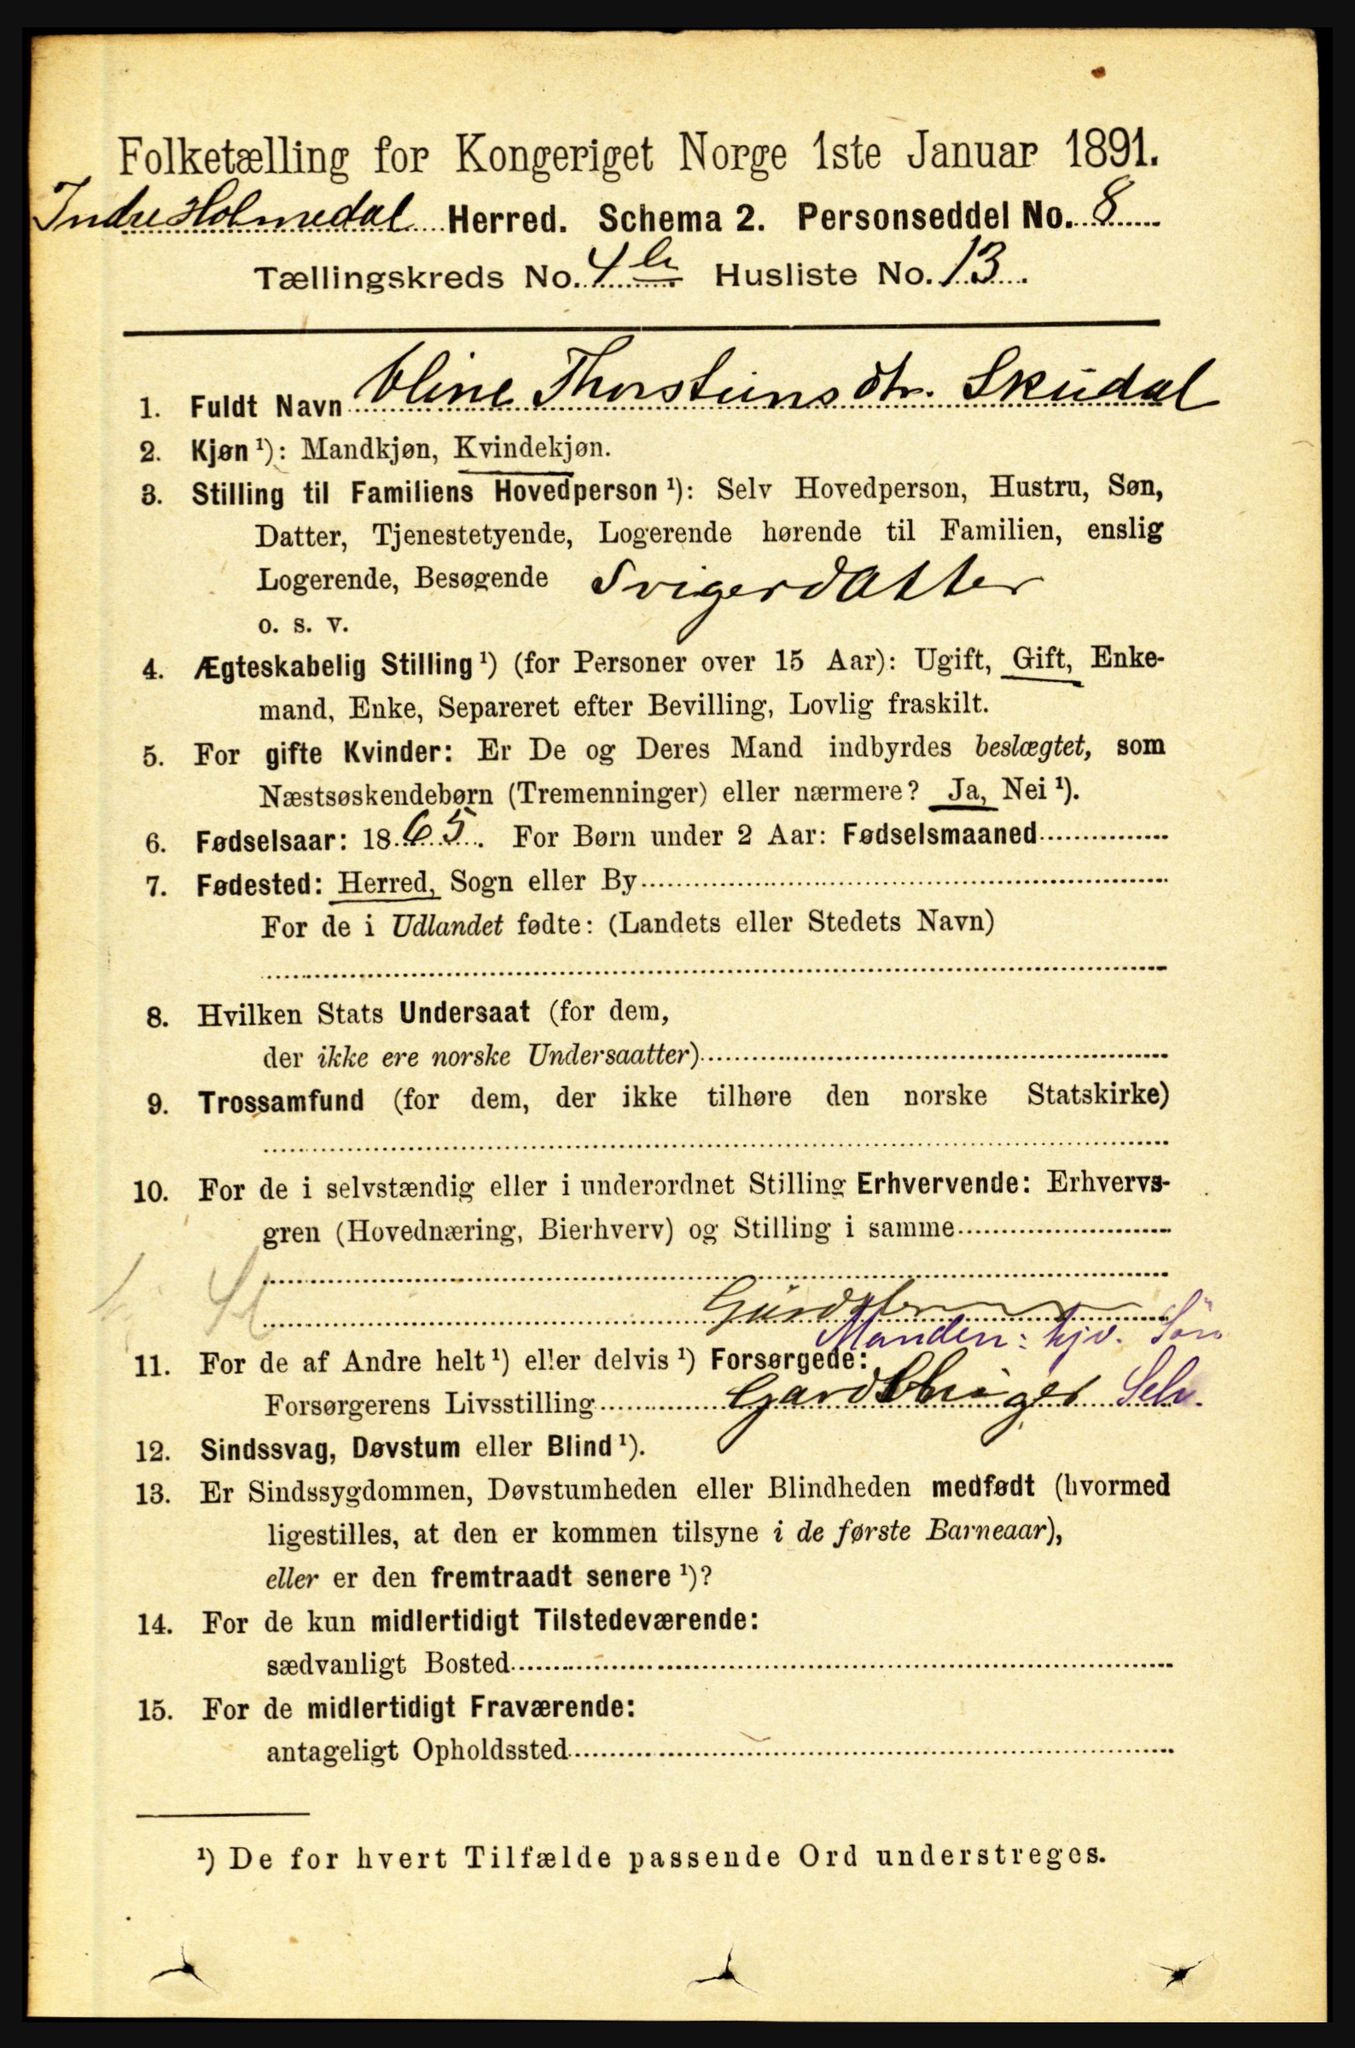 Folketælling for Kongeriget Norge 1ste Januar 1891.
Indre Holmedal Herred. Schema 2. Personseddel No. 8
Tællingskreds No. 4 Husliste No. 13.
1. Fuldt Navn Oline Thorsteinsdtr. Skudal
2. Kjøn ¹): Mandkjøn, Kvindekjøn.
3. Stilling til Familiens Hovedperson ¹): Selv Hovedperson, Hustru, Søn,
Datter, Tjenestetyende, Logerende hørende til Familien, enslig
Logerende, Besøgende Svigerdatter
o. s. v.
4. Ægteskabelig Stilling ¹) (for Personer over 15 Aar): Ugift, Gift, Enke-
mand, Enke, Separeret efter Bevilling, Lovlig fraskilt.
5. For gifte Kvinder: Er De og Deres Mand indbyrdes beslægtet, som
Næstsøskendebørn (Tremenninger) eller nærmere? Ja, Nei ¹).
6. Fødselsaar: 1865. For Børn under 2 Aar: Fødselsmaaned
7. Fødested: Herred, Sogn eller By
For de i Udlandet fødte: (Landets eller Stedets Navn)
8. Hvilken Stats Undersaat (for dem,
der ikke ere norske Undersaatter)
9. Trossamfund (for dem, der ikke tilhøre den norske Statskirke)
10. For de i selvstændig eller i underordnet Stilling Erhvervende: Erhvervs-
gren (Hovednæring, Bierhverv) og Stilling i samme
Manden: hjv. Søn
11. For de af Andre helt ¹) eller delvis ¹) Forsørgede:
Forsørgerens Livsstilling Gardbruger Selv.
12. Sindssvag, Døvstum eller Blind ¹).
13. Er Sindssygdommen, Døvstumheden eller Blindheden medfødt (hvormed
ligestilles, at den er kommen tilsyne i de første Barneaar),
eller er den fremtraadt senere ¹)?
14. For de kun midlertidigt Tilstedeværende:
sædvanligt Bosted
15. For de midlertidigt Fraværende:
antageligt Opholdssted
¹) De for hvert Tilfælde passende Ord understreges.